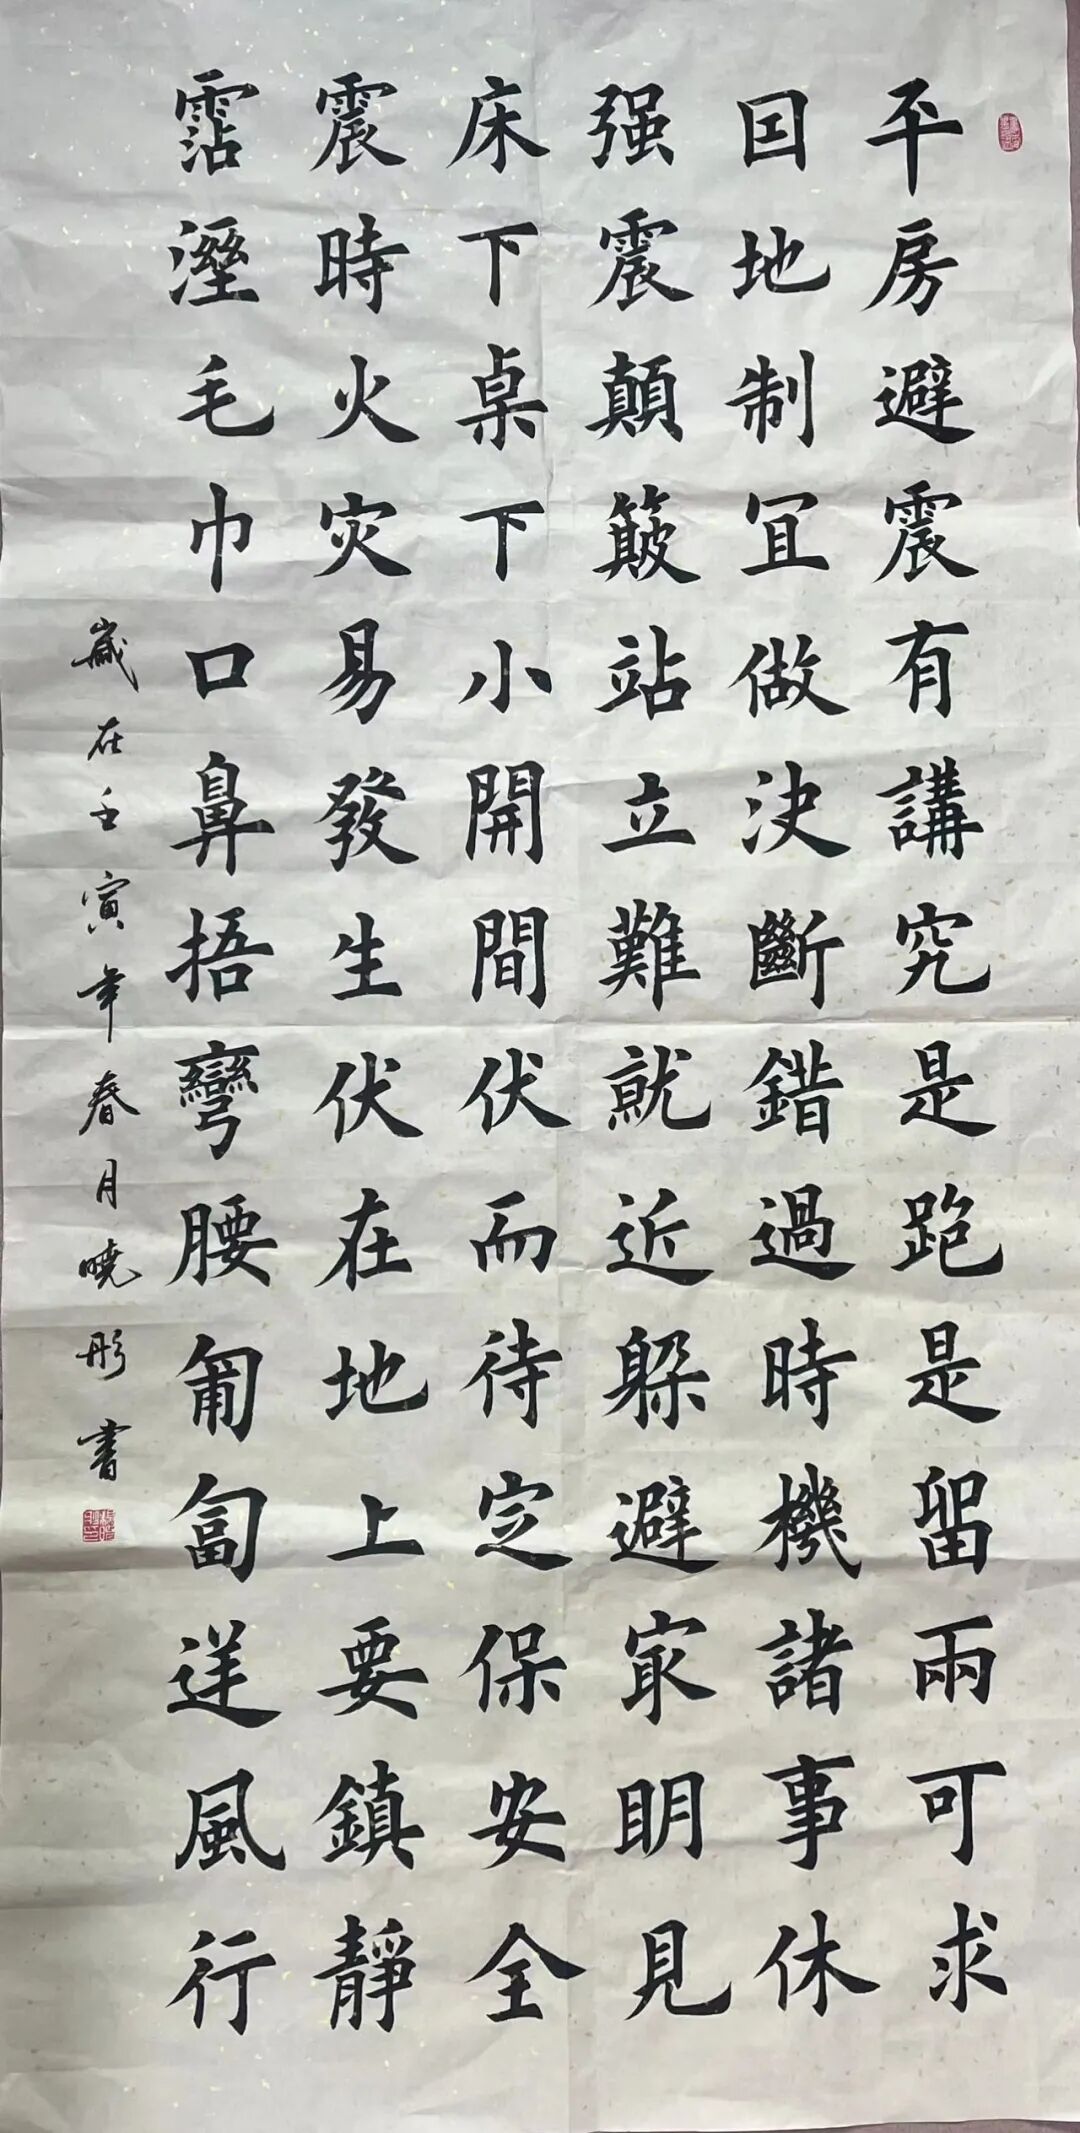 平房避震有講究是跑是留兩可求
囙地制冝做決斷錯過時機諸事休
强震顛簸站立難就近躲避冣眀見
床下桌下小開間伏而待定保安全
震時火灾易發生伏在地上要鎮靜
霑溼毛巾口鼻捂彎腰匍匐逆風行
歲在壬寅年春月曉彤書